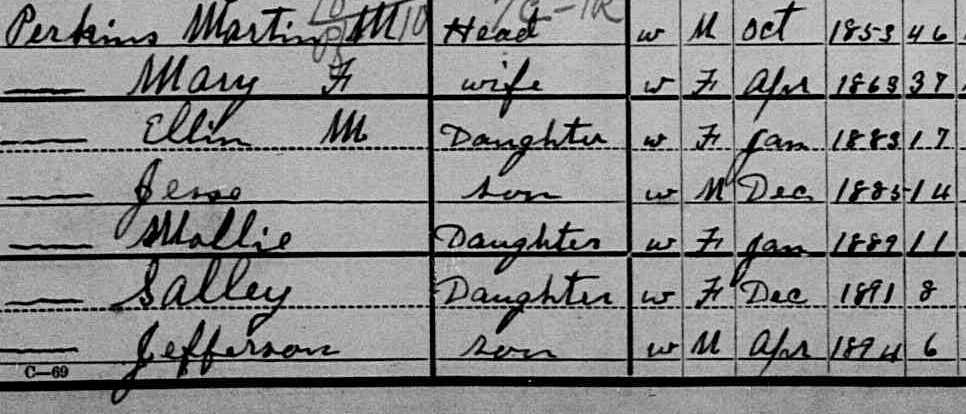 Perkins Martin M Head w M Oct 1853 46
— Mary F wife w F Apr 1863 37
— Ellin M Daughter w F Jan 1883 17
— Jesse son w M Dec 1885 14
— Mollie Daughter w F Jan 1889 11
— Salley Daughter w F Dec 1891 8
— Jefferson son w M Apr 1894 6
C—69